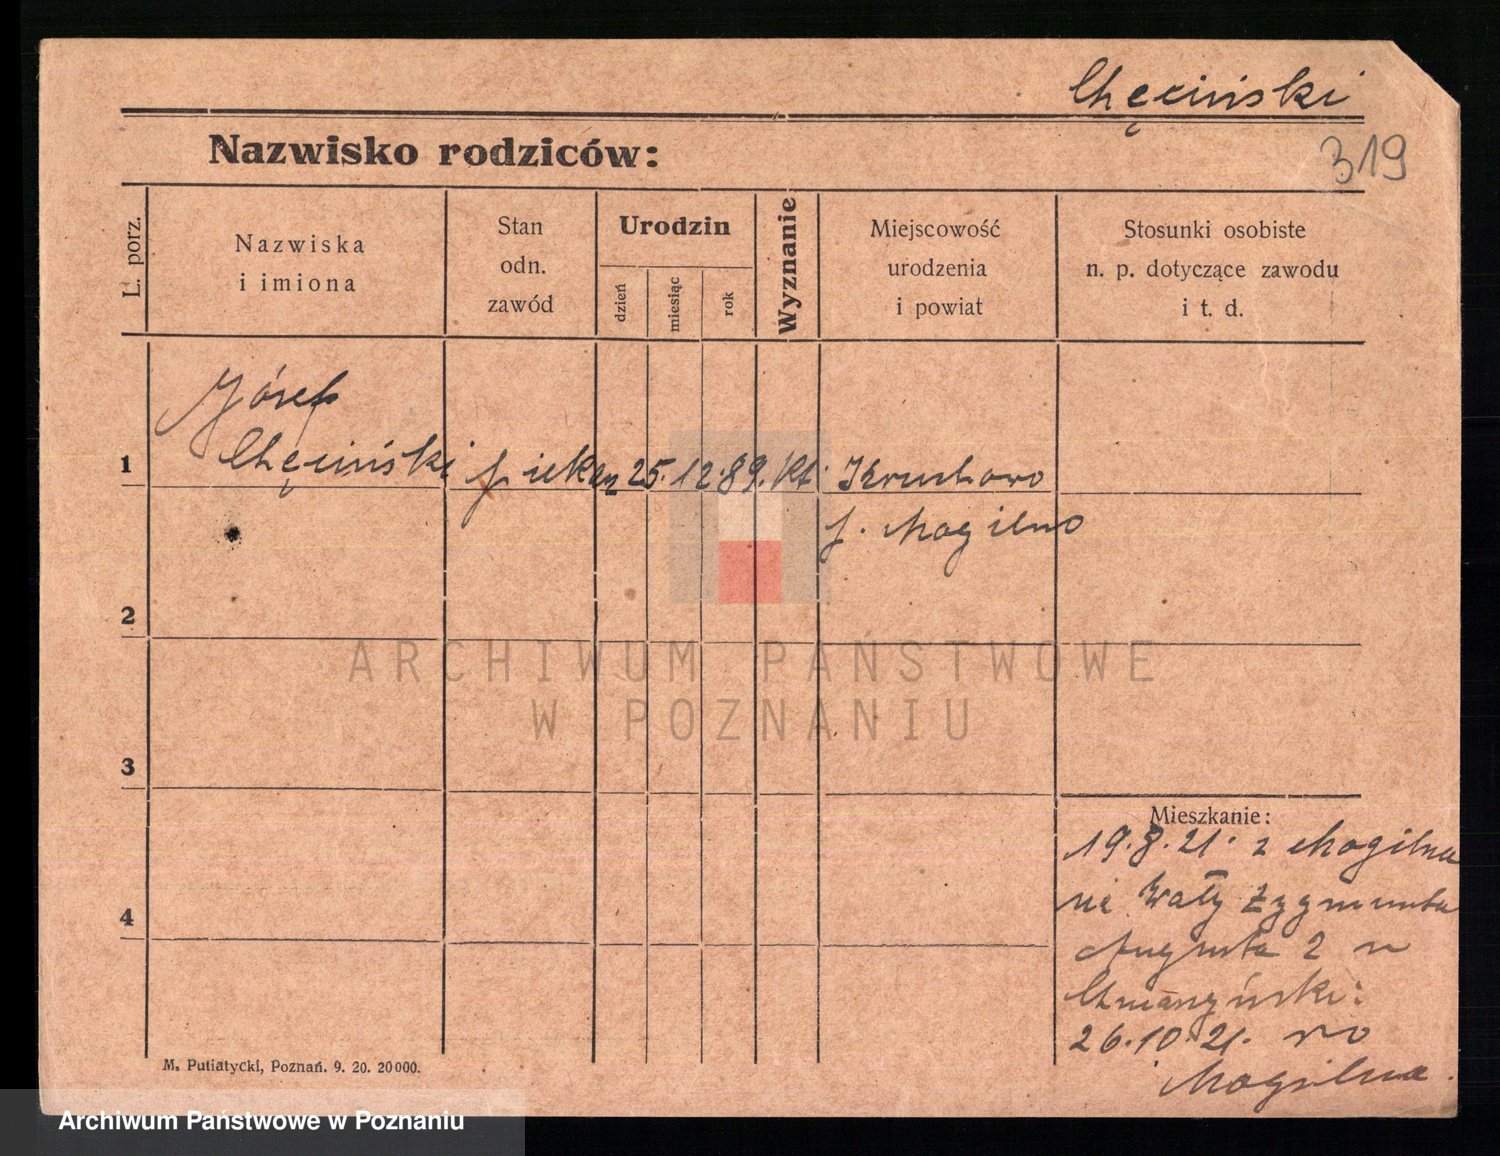 Chęciński
319
Nazwisko rodziców:
L. porz.
Nazwiska
i imiona
Stan
odn.
zawód
Urodzin
dzień
miesiąc
rok
Wyznanie
Miejscowość
urodzenia
i powiat
Stosunki osobiste
n. p. dotyczące zawodu
i t. d.
Józef
1 Chęciński piekarz 25. 12. 89. Kt. Kruchowo
p. Mogilno
2
ARCHIWUM PAŃSTWOWE
W POZNANIU
3
Mieszkanie:
19.8.21. z Mogilna
na Wały Zygmunta
4
Augusta 2 u
26.10.21. do
Mogilna.
M. Putiatycki, Poznań. 9. 20. 20000.
Archiwum Państwowe w Poznaniu